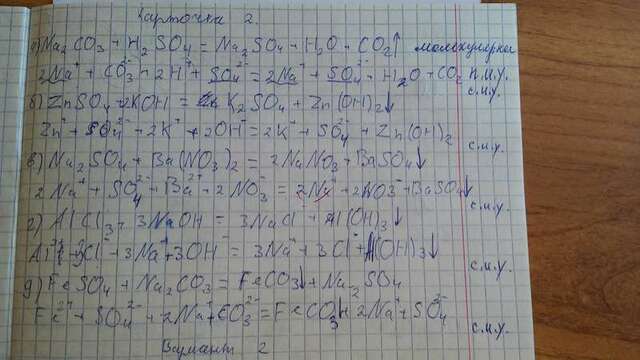 Карточка 2.
а) Na₂CO₃ + H₂SO₄ = Na₂SO₄ + H₂O + CO₂↑ молекулярн
2Na⁺ + CO₃²⁻ + 2H⁺ + SO₄²⁻ = 2Na⁺ + SO₄²⁻ + H₂O + CO₂ п.и.у.
с.и.у.
б) ZnSO₄ + 2KOH = K₂SO₄ + Zn(OH)₂↓
Zn⁺ + SO₄²⁻ + 2K⁺ + 2OH⁻ = 2K⁺ + SO₄²⁻ + Zn(OH)₂
с.и.у.
в) Na₂SO₄ + Ba(NO₃)₂ = 2NaNO₃ + BaSO₄↓
2Na⁺ + SO₄²⁻ + Ba²⁺ + 2NO₃⁻ = 2Na⁺ + 2NO3⁻ + BaSO₄↓
с.и.у.
г) AlCl₃ + 3NaOH = 3NaCl + Al(OH)₃↓
Al³⁺ + 3Cl⁻ + 3Na⁺ + 3OH⁻ = 3Na⁺ + 3Cl⁻ + Al(OH)₃↓
с.и.у.
д) FeSO₄ + Na₂CO₃ = FeCO₃↓ + Na₂SO₄
Fe²⁺ + SO₄²⁻ + 2Na⁺ + CO₃²⁻ = FeCO₃↓ + 2Na⁺ + SO₄²⁻
с.и.у.
Вариант 2